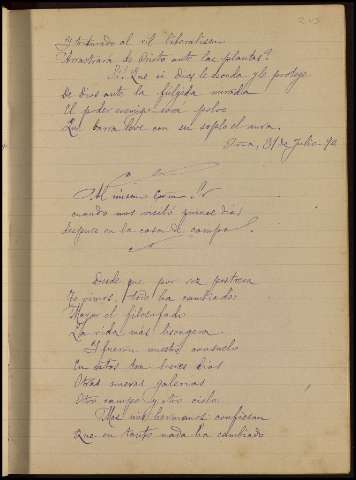 Y torturado al vil liberalismo
Arrastrara de Cristo ante las plantas?
Sí! Que si Dios le ayuda y le protege
De Dios ante la fúlgida mirada
El poder enemigo será polvo
Que barra leve con su soplo el aura.
31 de Julio - 90
Al mismo
cuando nos visitó quince días
despues en la casa de campo.
Desde que por vez postrera
Te vimos, todo ha cambiado:
Mayor el
La vida más lisongera.
Y fueron nuestro consuelo
En estos tan breves días
Otras nuevas galerias
Otro campo y otro cielo.
Mas mis hermanos confiesan
Que en tanto nada ha cambiado